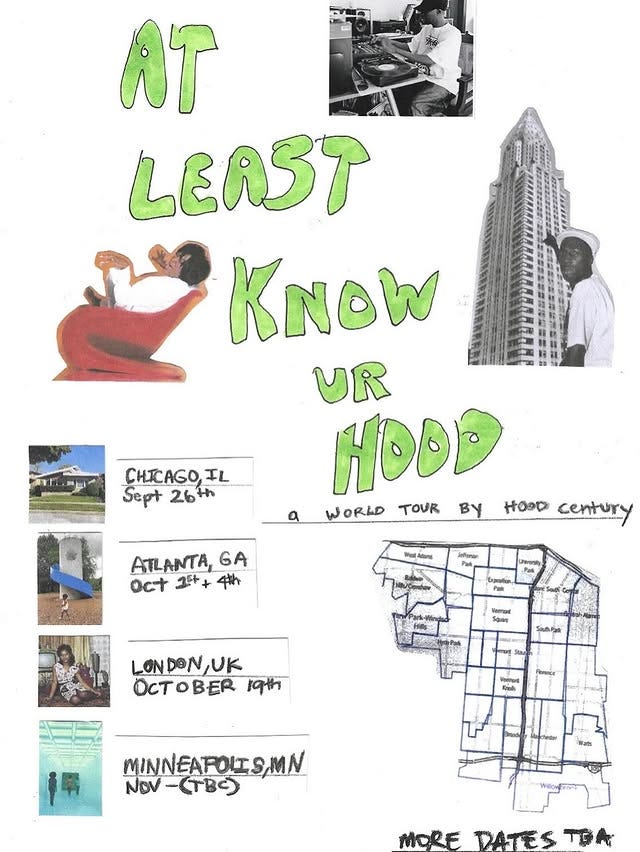 AT
LEAST
KNOW
UR
HOOD
a WORLD TOUR BY HOOD century
CHICAGO, IL
Sept 26th
ATLANTA, GA
OCT 1st + 4th
LONDON, UK
OCTOBER 19th
MINNEAPOLIS, MN
NOV - (TBC)
West Adams
Jefferson Park
University Park
Baldwin Hills/Crenshaw
Exposition Park
South Central
Vermont Square
View Park-Windsor Hills
South Park
Hyde Park
Vermont
Florence
Vermont Knolls
Manchester
Watts
Willowbrook
MORE DATES TBA